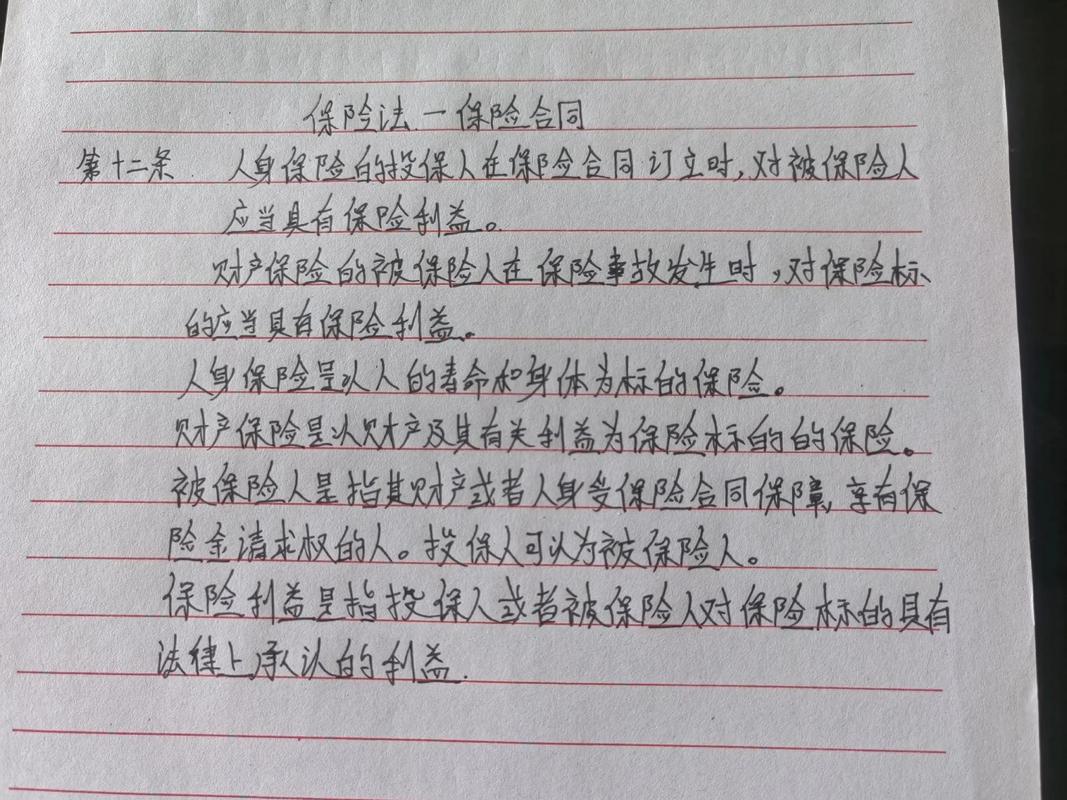 保险法一保险合同
第十二条 人身保险的投保人在保险合同订立时,对被保险人
应当具有保险利益。
财产保险的被保险人在保险事故发生时,对保险标
的应当具有保险利益。
人身保险是以人的寿命和身体为标的保险。
财产保险是以财产及其有关利益为保险标的的保险。
被保险人是指其财产或者人身受保险合同保障,享有保
险金请求权的人。投保人可以为被保险人。
保险利益是指投保人或者被保险人对保险标的具有
法律上承认的利益.